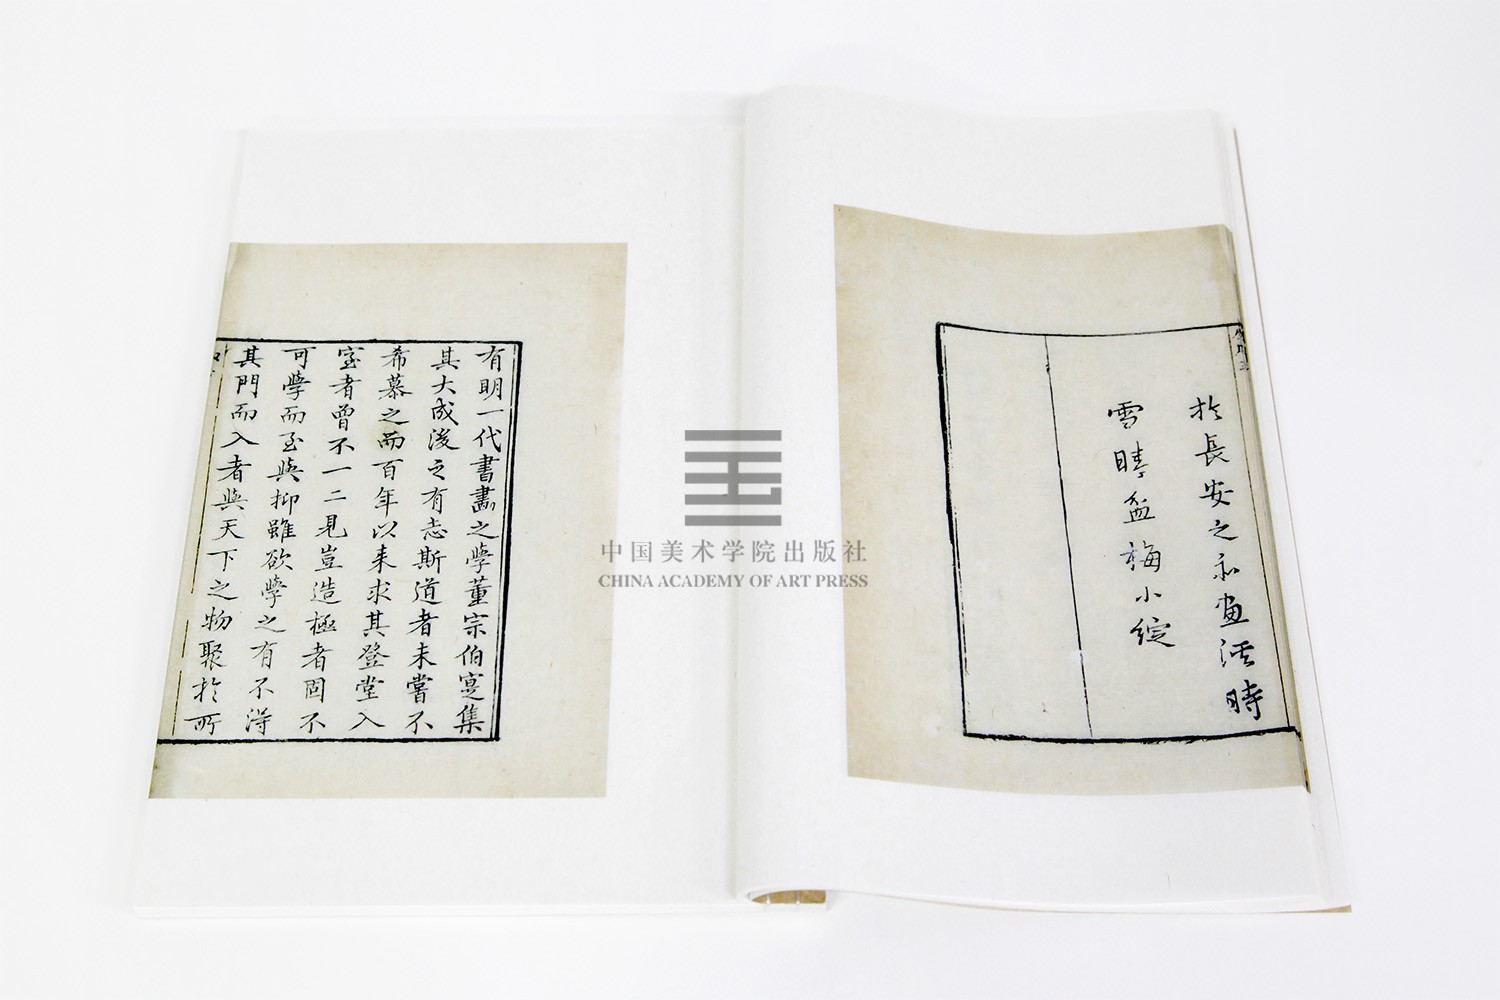 於長安之永畫溪時
雪晴盆梅小綻
有明一代書畫之學董宗伯寔集
其大成後之有志斯道者未嘗不
希慕之而百年以来求其登堂入
室者曾不一二見豈造極者固不
可學而至與抑雖欲學之有不得
其門而入者與天下之物聚於所
中国美术学院出版社
CHINA ACADEMY OF ART PRESS